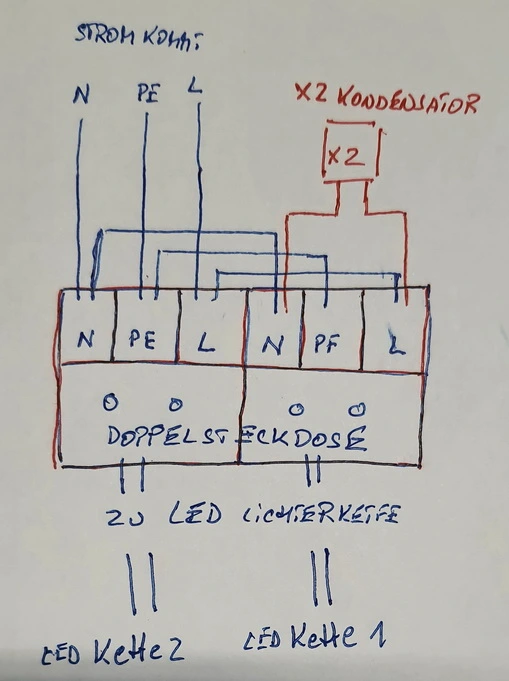 STROM KOMMT
N PE L
X2 KONDENSATOR
X2
N PE L N PE L
DOPPELSTECKDOSE
ZU LED LICHTERKETTE
LED Kette 2 LED Kette 1